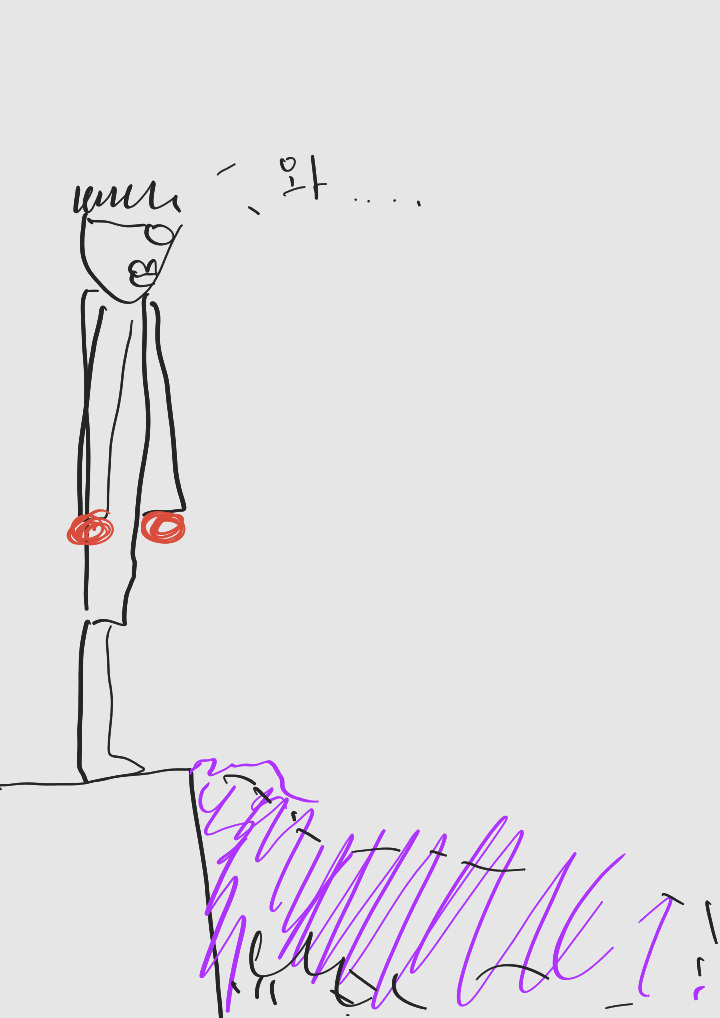 와....